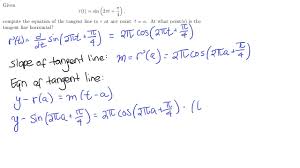 Given
r(t) = sin(2πt + π/4),
compute the equation of the tangent line to r at any point t = a. At what point(s) is the
tangent line horizontal?
r'(t) = d/dt sin(2πt + π/4) = 2π cos(2πt + π/4)
slope of tangent line: m = r'(a) = 2π cos(2πa + π/4)
Eqn of tangent line:
y - r(a) = m(t - a)
y - sin(2πa + π/4) = 2π cos(2πa + π/4) · (t